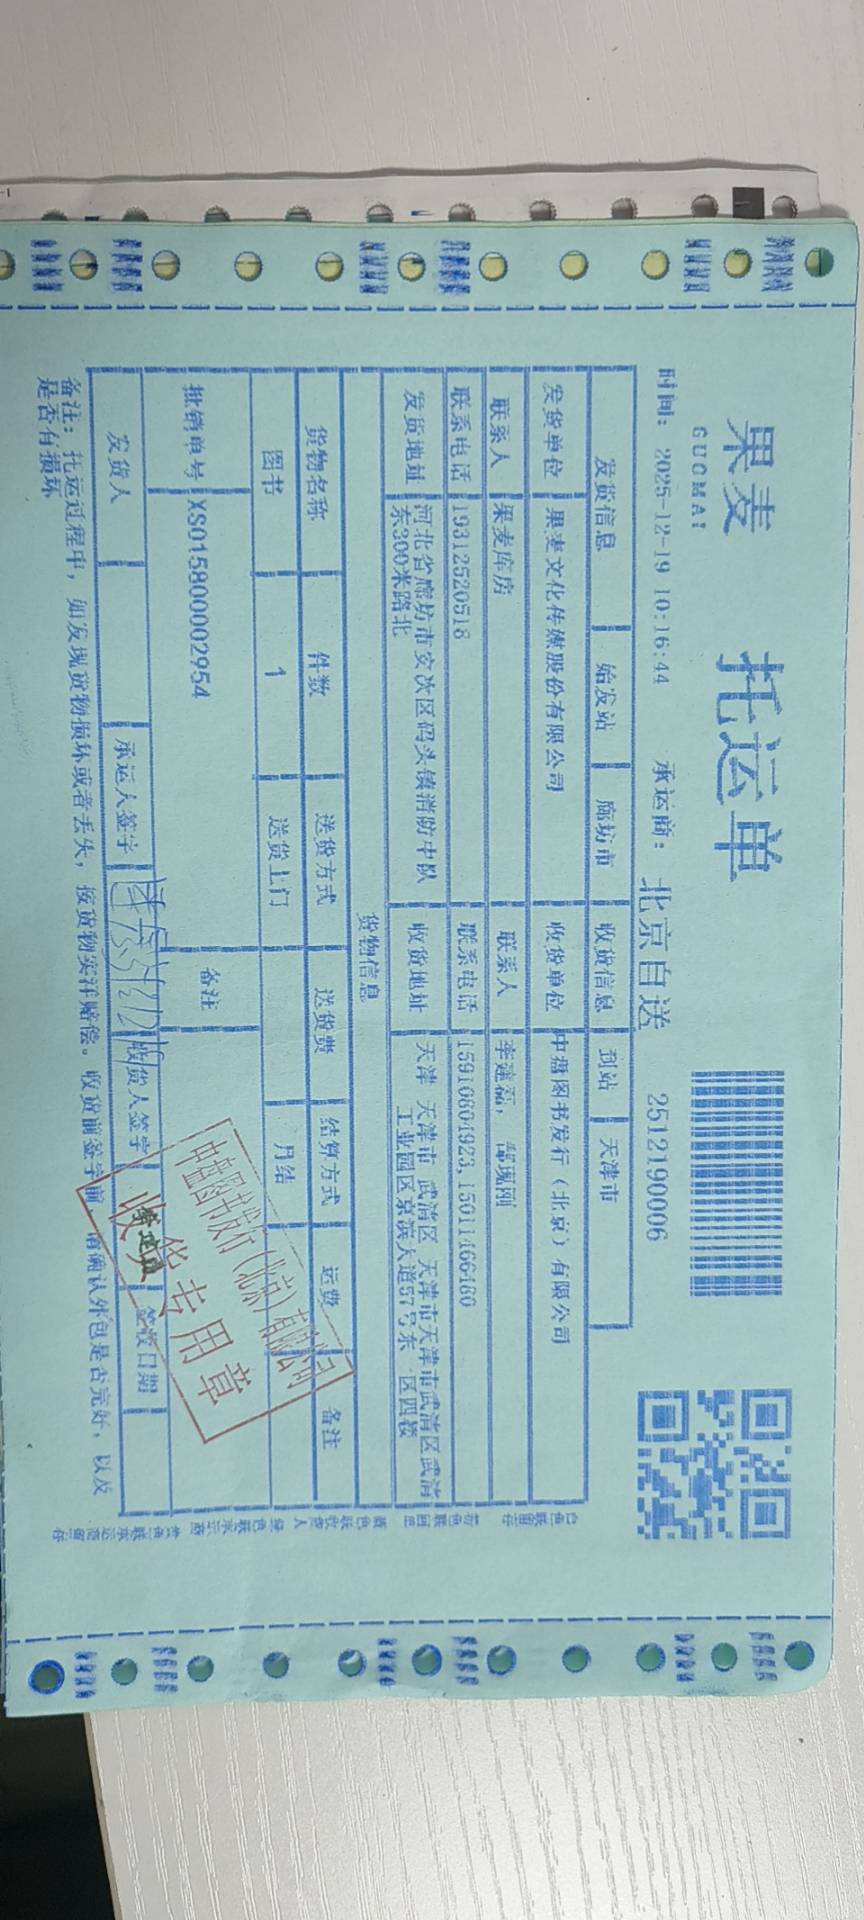 果麦
GUOMAI
托运单
时间: 2025-12-19 10:16:44 承运商: 北京自送 2512190006
发货信息 始发站 廊坊市 收货信息 到站 天津市
发货单位 果麦文化传媒股份有限公司 收货单位 中盘图书发行（北京）有限公司
联系人 果麦库房 联系人 李建磊,
联系电话 19312520518 联系电话 15910804923,15011466460
发货地址 河北省廊坊市安次区码头镇消防中队东300米路北 收货地址 天津 天津市 武清区 天津市天津市武清区武清工业园区京滨大道57号东 区四楼
货物信息
货物名称 件数 送货方式 送货费 结算方式 运费 备注
图书 1 送货上门 月结
报销单号 XS015800002954 备注
发货人 承运人签字 收货人签字 签收日期
备注: 托运过程中, 如发现货物损坏或者丢失, 按货物实洋赔偿。收货前签字前, 请确认外包是否完好, 以及
是否有损坏
中盘图书发行（北京）有限公司
收货专用章